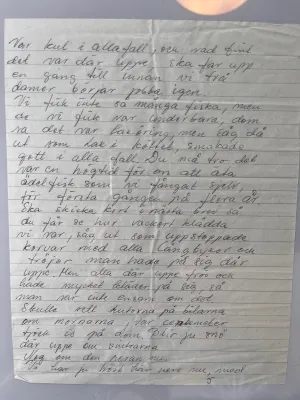 Var kul i allafall, och vad fint
det var där uppe. Ska far upp
en gång till innan vi två
damer börjar jobba igen.
Vi fick inte så många fiska, men
de vi fick var underbara, dom
va det var men såg då
ut som lax i köttet, smakade
gott i alla fall. Du må tro det
var en högtid för om att äta
ädelfisk som vi fångat själv,
för första gången på flera år.
Ska skicka kort i nästa brev så
du får se hur vackert klädda
vi var, såg ut som uppstoppade
korvar med alla långbyxer och
tröjor man hade på sig där
uppe. Men alla där uppe
hade mycket kläder på sig så
man var inte ensam om det.
Skulle sett rutorna på bilarna
om mornarna, centimeter
tjock is på dom. Det är ju
där uppe om nätterna
om den
här ju varit här nere nu, med
5